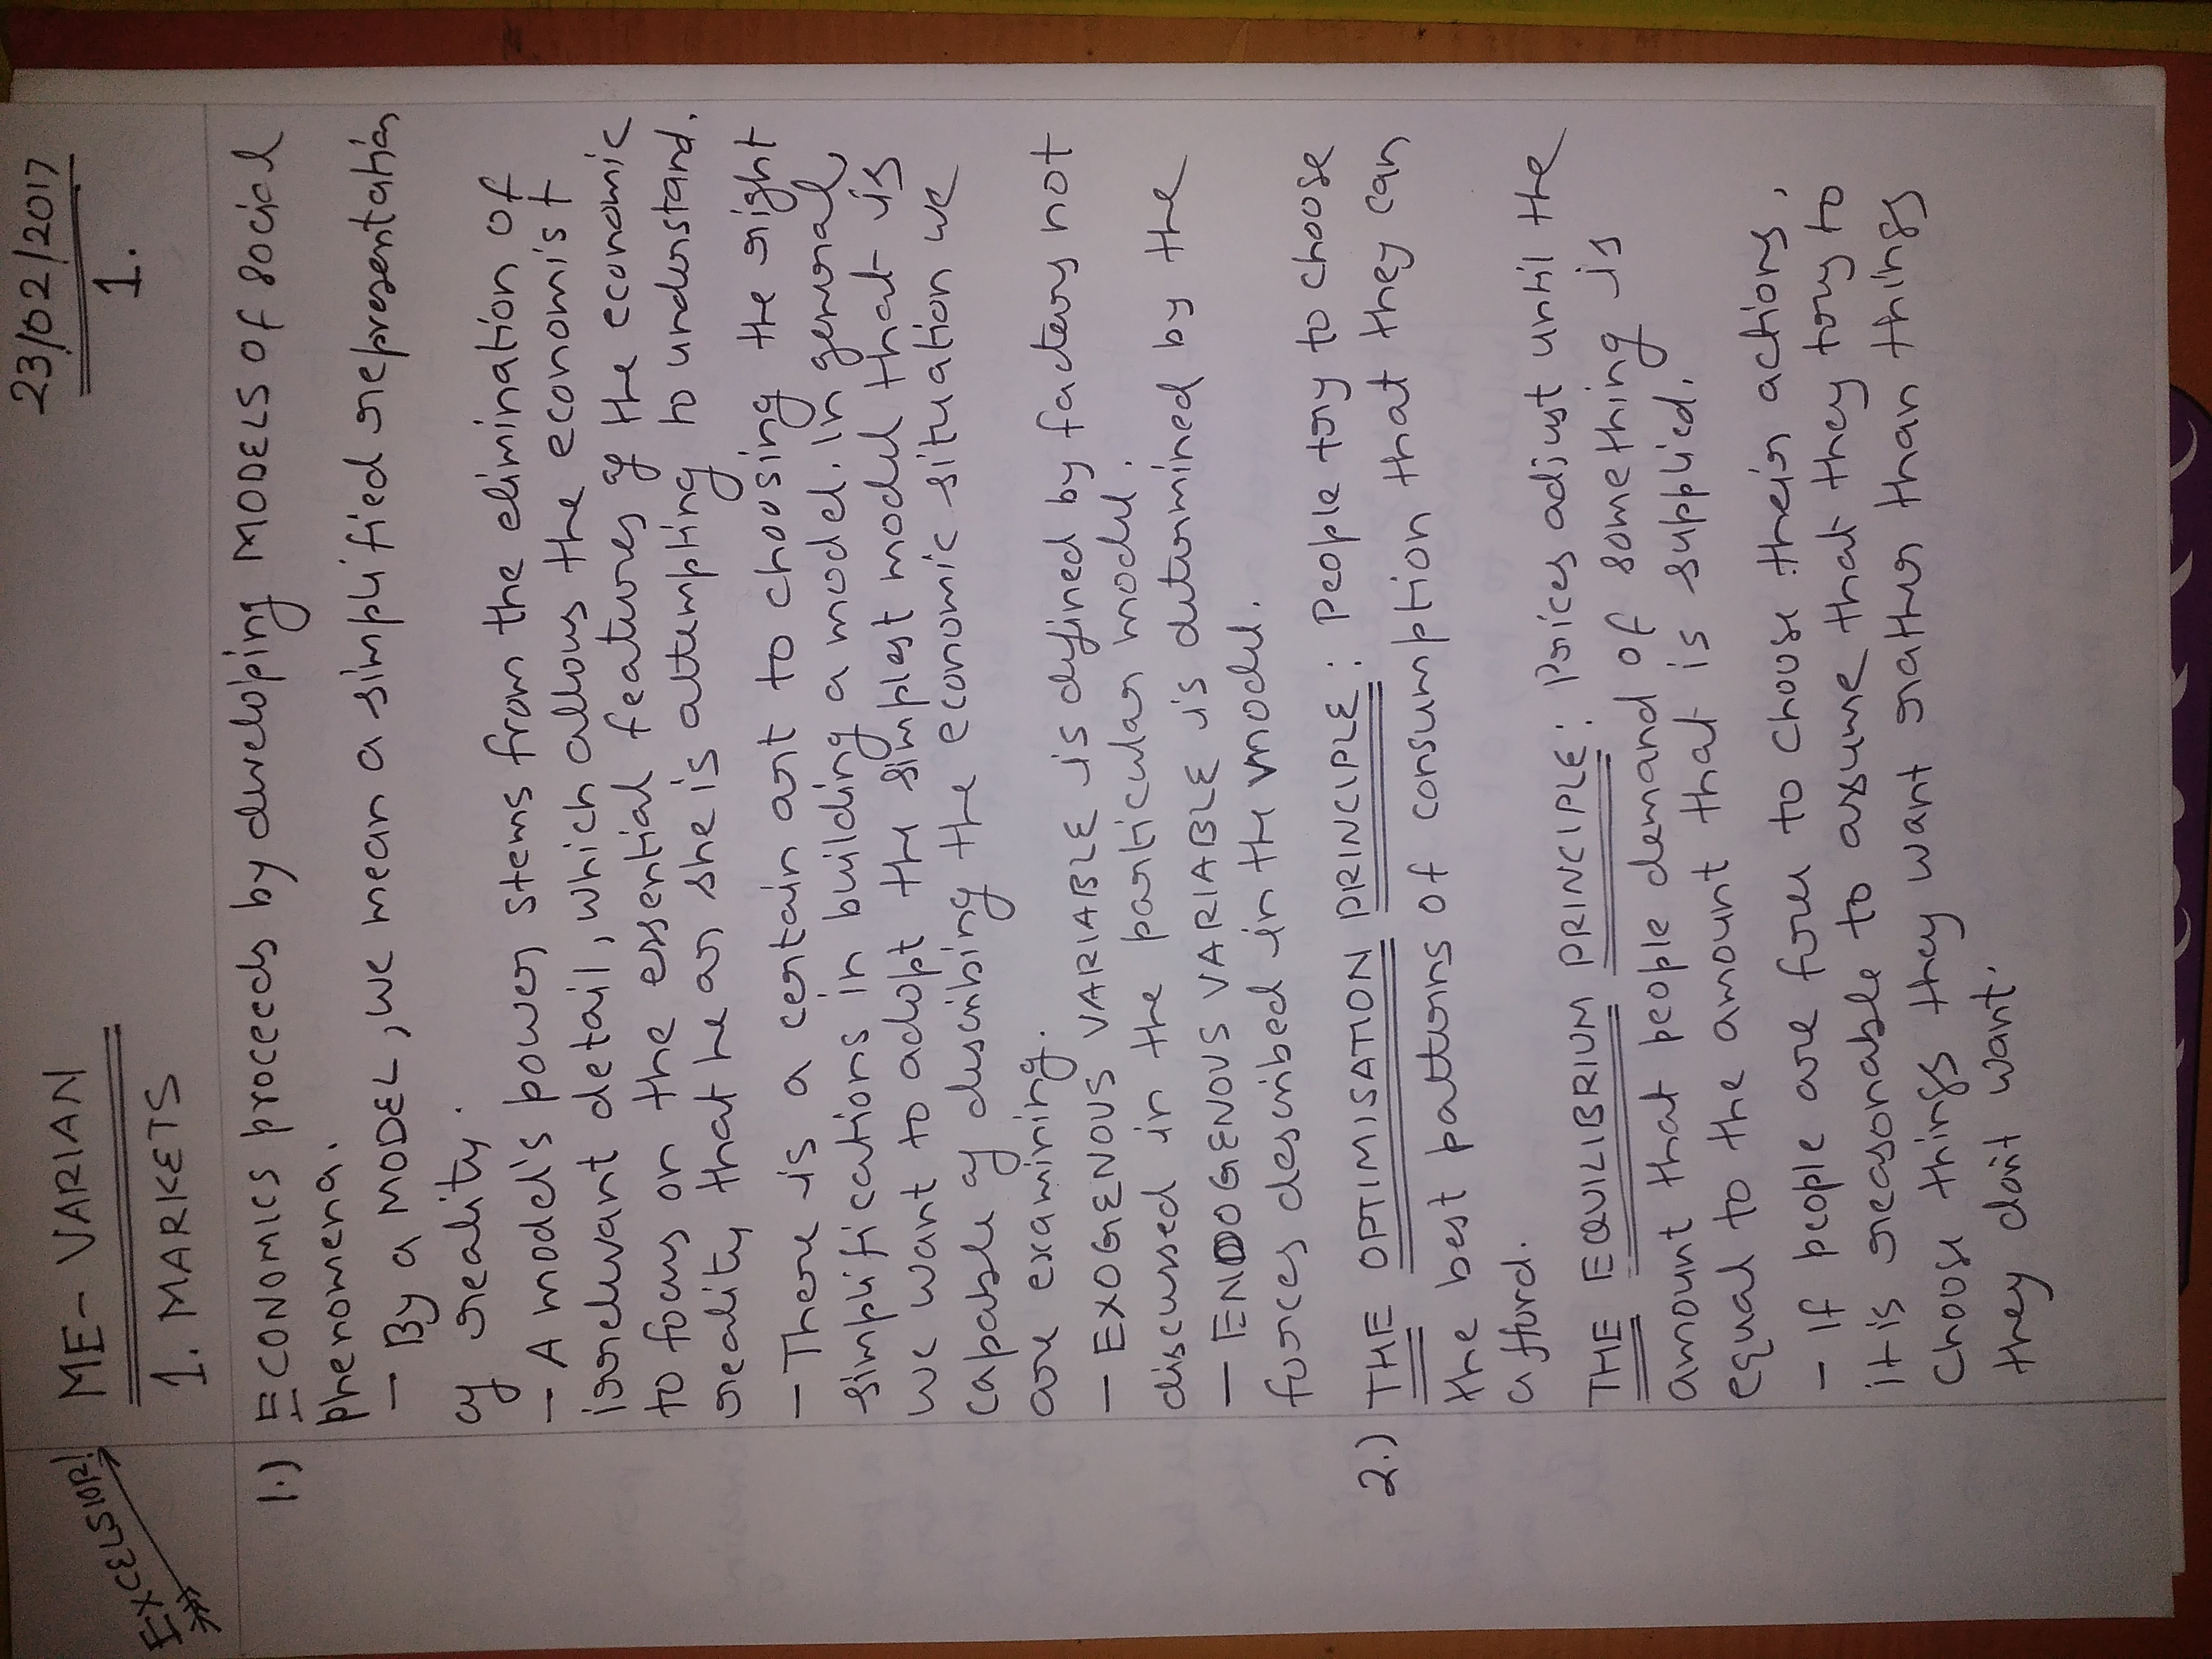 EXCELSIOR!
ME- VARIAN
23/02/2017
1.
1. MARKETS
1.) ECONOMICS proceeds by developing MODELS of social
phenomena.
- By a MODEL, we mean a simplified representation
of reality.
- A model's power stems from the elimination of
irrelevant detail, which allows the economist
to focus on the essential features of the economic
reality that he or she is attempting to understand.
- There is a certain art to choosing the right
simplifications in building a model. In general,
we want to adopt the simplest model that is
capable of describing the economic situation we
are examining.
- EXOGENOUS VARIABLE is defined by factors not
discussed in the particular model.
- ENDOGENOUS VARIABLE is determined by the
forces described in the model.
2.) THE OPTIMISATION PRINCIPLE: People try to choose
the best patterns of consumption that they can
afford.
THE EQUILIBRIUM PRINCIPLE: Prices adjust until the
amount that people demand of something is
equal to the amount that is supplied.
- If people are free to choose their actions,
it is reasonable to assume that they try to
choose things they want rather than things
they don't want.